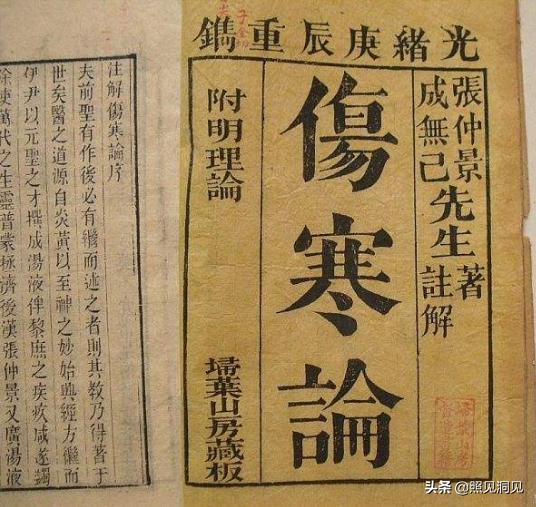 光緒庚辰重鐫
張仲景先生著
成無己先生註解
傷寒論
附明理論
埽葉山房藏板
註解傷寒論序
夫前聖有作後必有繼而述之者則其教乃得著于
世矣醫之道源自炎黃以至神之妙始興經方繼而
伊尹以元聖之才撰成湯液俾黎庶之疾疚咸遂蠲
除使萬代之生靈普蒙拯濟後漢張仲景又廣湯液
头条 @照见洞见